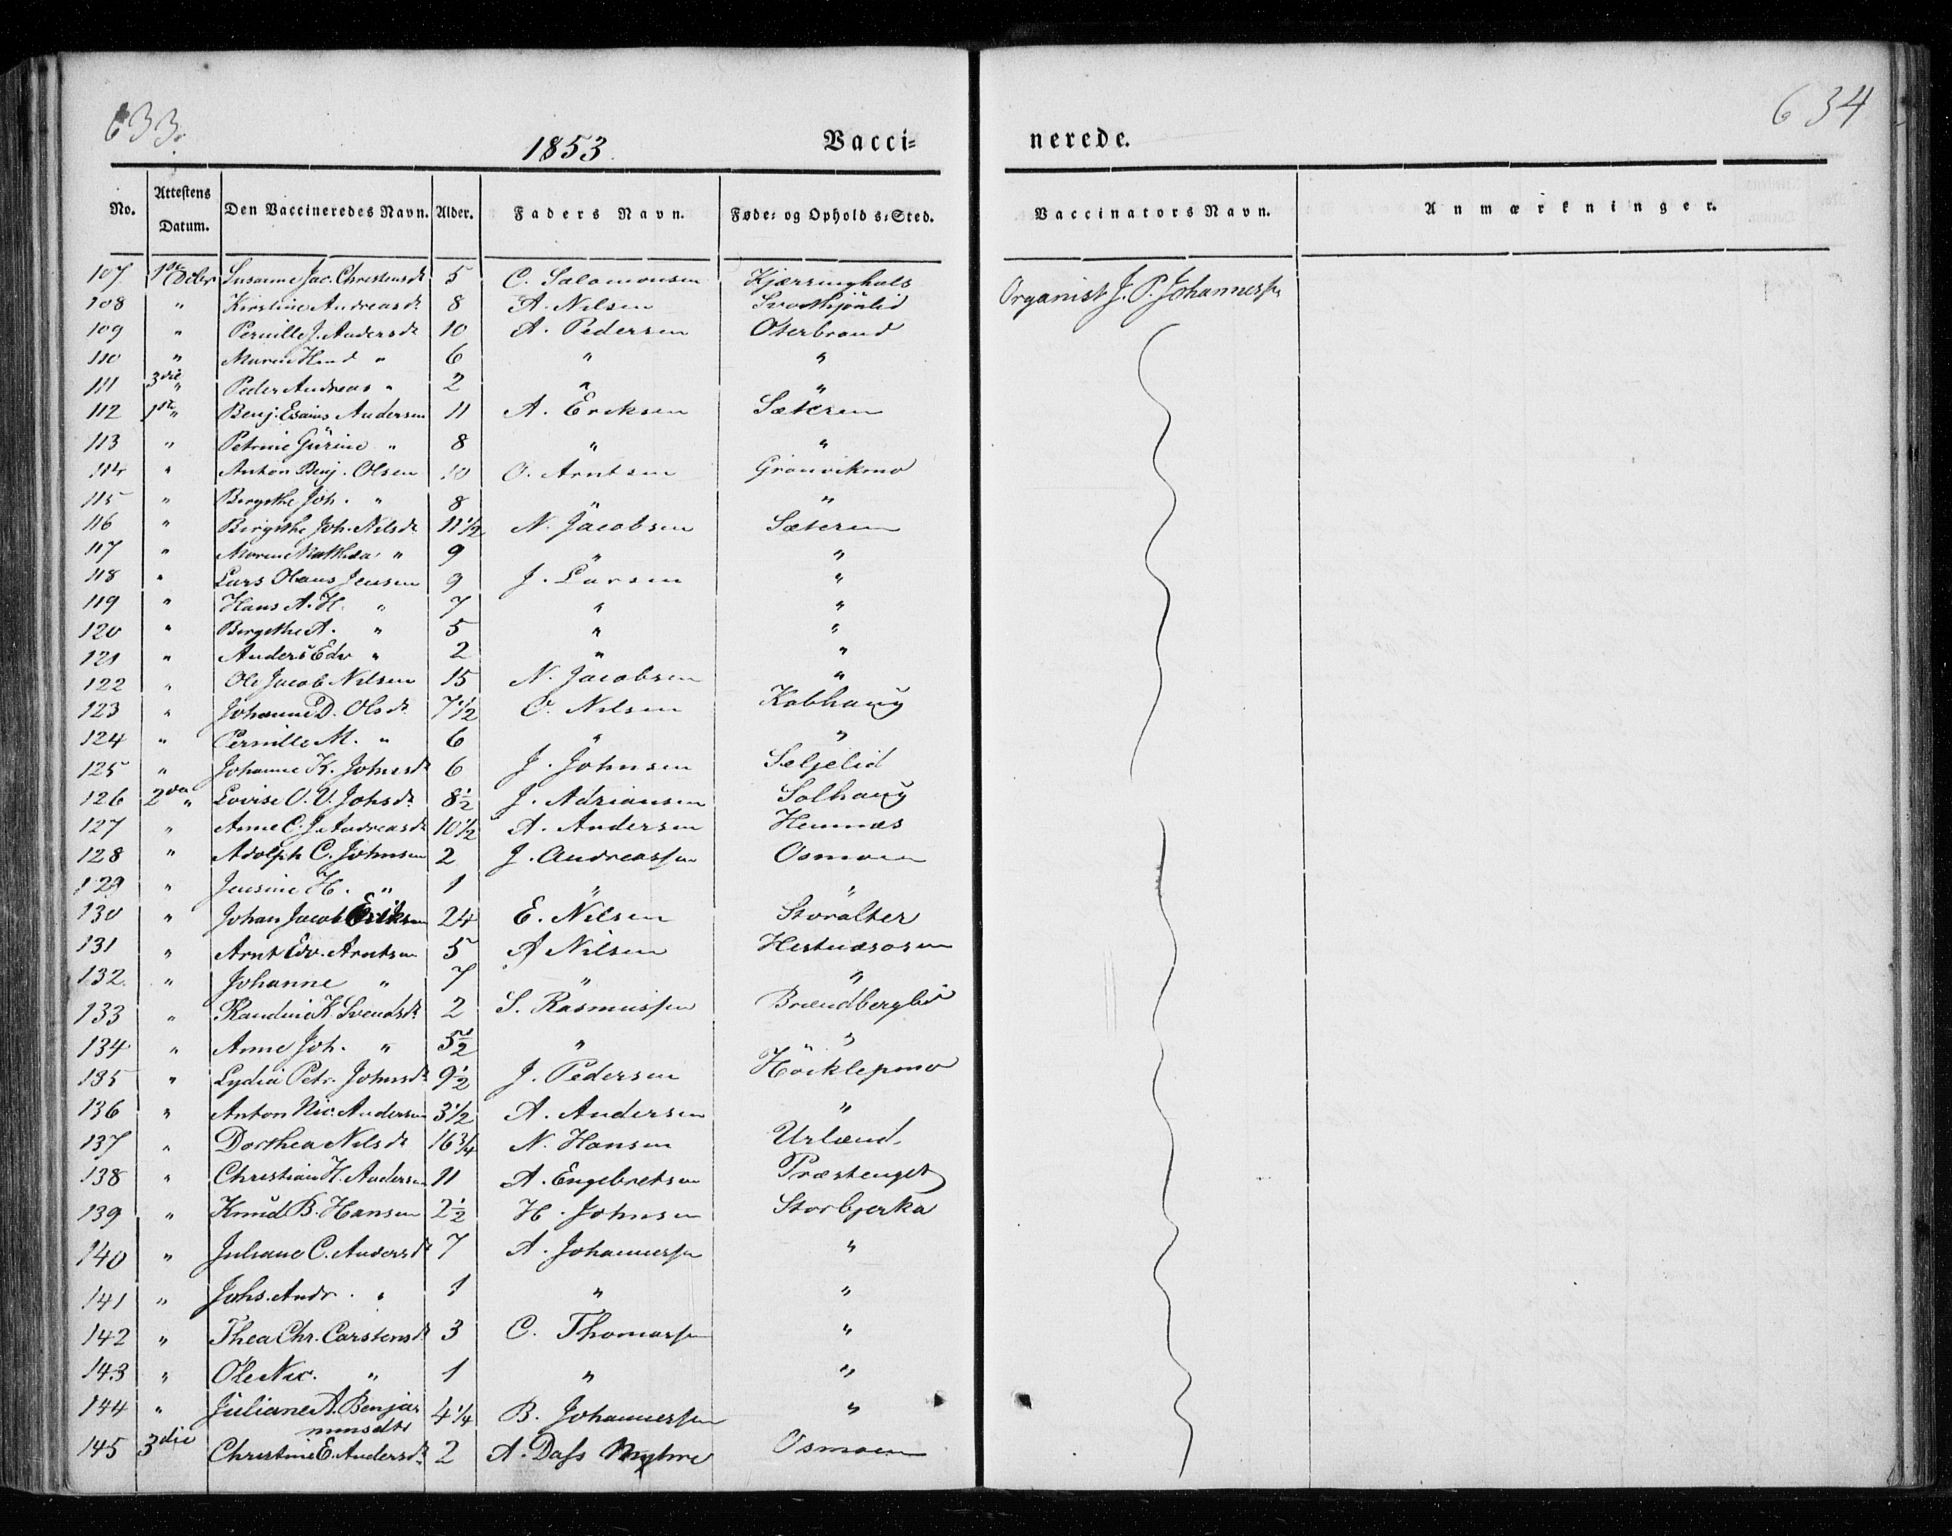 633. 1853. Vacci= nerede. 634
No. Attestens Datum. Den Vaccineredes Navn. Alder. Faders Navn. Føde= og Opholds=Sted. Vaccinators Navn. Anmærkninger.
107 1ste Octbr Susanne Jac. Christensdr 5 C. Salomonsen Kjærringhals Organist J. P. Johannessen
108 " Kirstine Andreasdr 8 A. Nilsen Svarthjønlid
109 " Pernille J. Andersdr 10 A. Pedersen Oterbrand
110 " Maren Hend " 6 " "
111 3die " Peder Andreas " 2 " "
112 1ste " Benj. Esaius Andersen 11 A. Eriksen Sæteren
113 " Petrine Gurine " 8 " "
114 " Anton Benj. Olsen 10 O. Arntsen Granvikmo
115 " Bergithe Joh. " 8 " "
116 " Birgithe Joh. Nilsdr 11 1/2 N. Jacobsen Sæteren
117 " Maren Mathea " 9 " "
118 " Lars Olaus Jensen 9 J. Larsen "
119 " Hans A. H. " 7 " "
120 " Bergithe A. " 5 " "
121 " Anders Edv " 2 " "
122 " Ole Jacob Nilsen 15 N. Jacobsen "
123 " Johanne D. Olsdr 7 1/2 O. Nilsen Kobhaug
124 " Pernille M. " 6 " "
125 " Johanne K. Johnsdr 6 J. Johnsen Seljelid
126 2den " Lovise O. V. Johsdr 8 1/2 J. Adriansen Solhaug
127 " Anne C. J. Andreasdr 10 1/2 A. Andersen Hemnæs
128 " Adolph C. Johnsen 2 J. Andreassen Osmoen
129 " Jensine H. " 1 " "
130 " Johan Jacob Eriksen 24 E. Nilsen Storalter
131 " Arnt Edv. Arntsen 5 A Nilsen Hestnæsosen
132. " Johanne " 7 " "
133 " Randine K. Svendsdr 2 S. Rasmussen Brændberglid
134 " Anne Joh. " 5 1/2 " "
135 " Lydia Petr. Johnsdr 9 1/2 J. Pedersen Höcklepmo
136 " Anton Nic. Andersen 3 1/2 A. Andersen "
137 " Dorthea Nilsdr 16 3/4 N. Hansen Urlænd.
138 " Christian H. Andersen 11 A. Engebretsen Præstenget
139 " Knud B. Hansen 2 1/2 H. Johnsen Storbjerka
140 " Juliane C. Andersdr 7 A. Johannessen "
141 " Johs. Andr. " 1 " "
142 " Thea Chr. Carstensdr 3 C. Thomassen "
143 " Ole Nic. " 1 " "
144 " Juliane A. Benja=
minsdtr 4 1/4 B. Johannessen "
145 3die Christine E. Andersdr. 2 A. Dass Myhre Osmoen